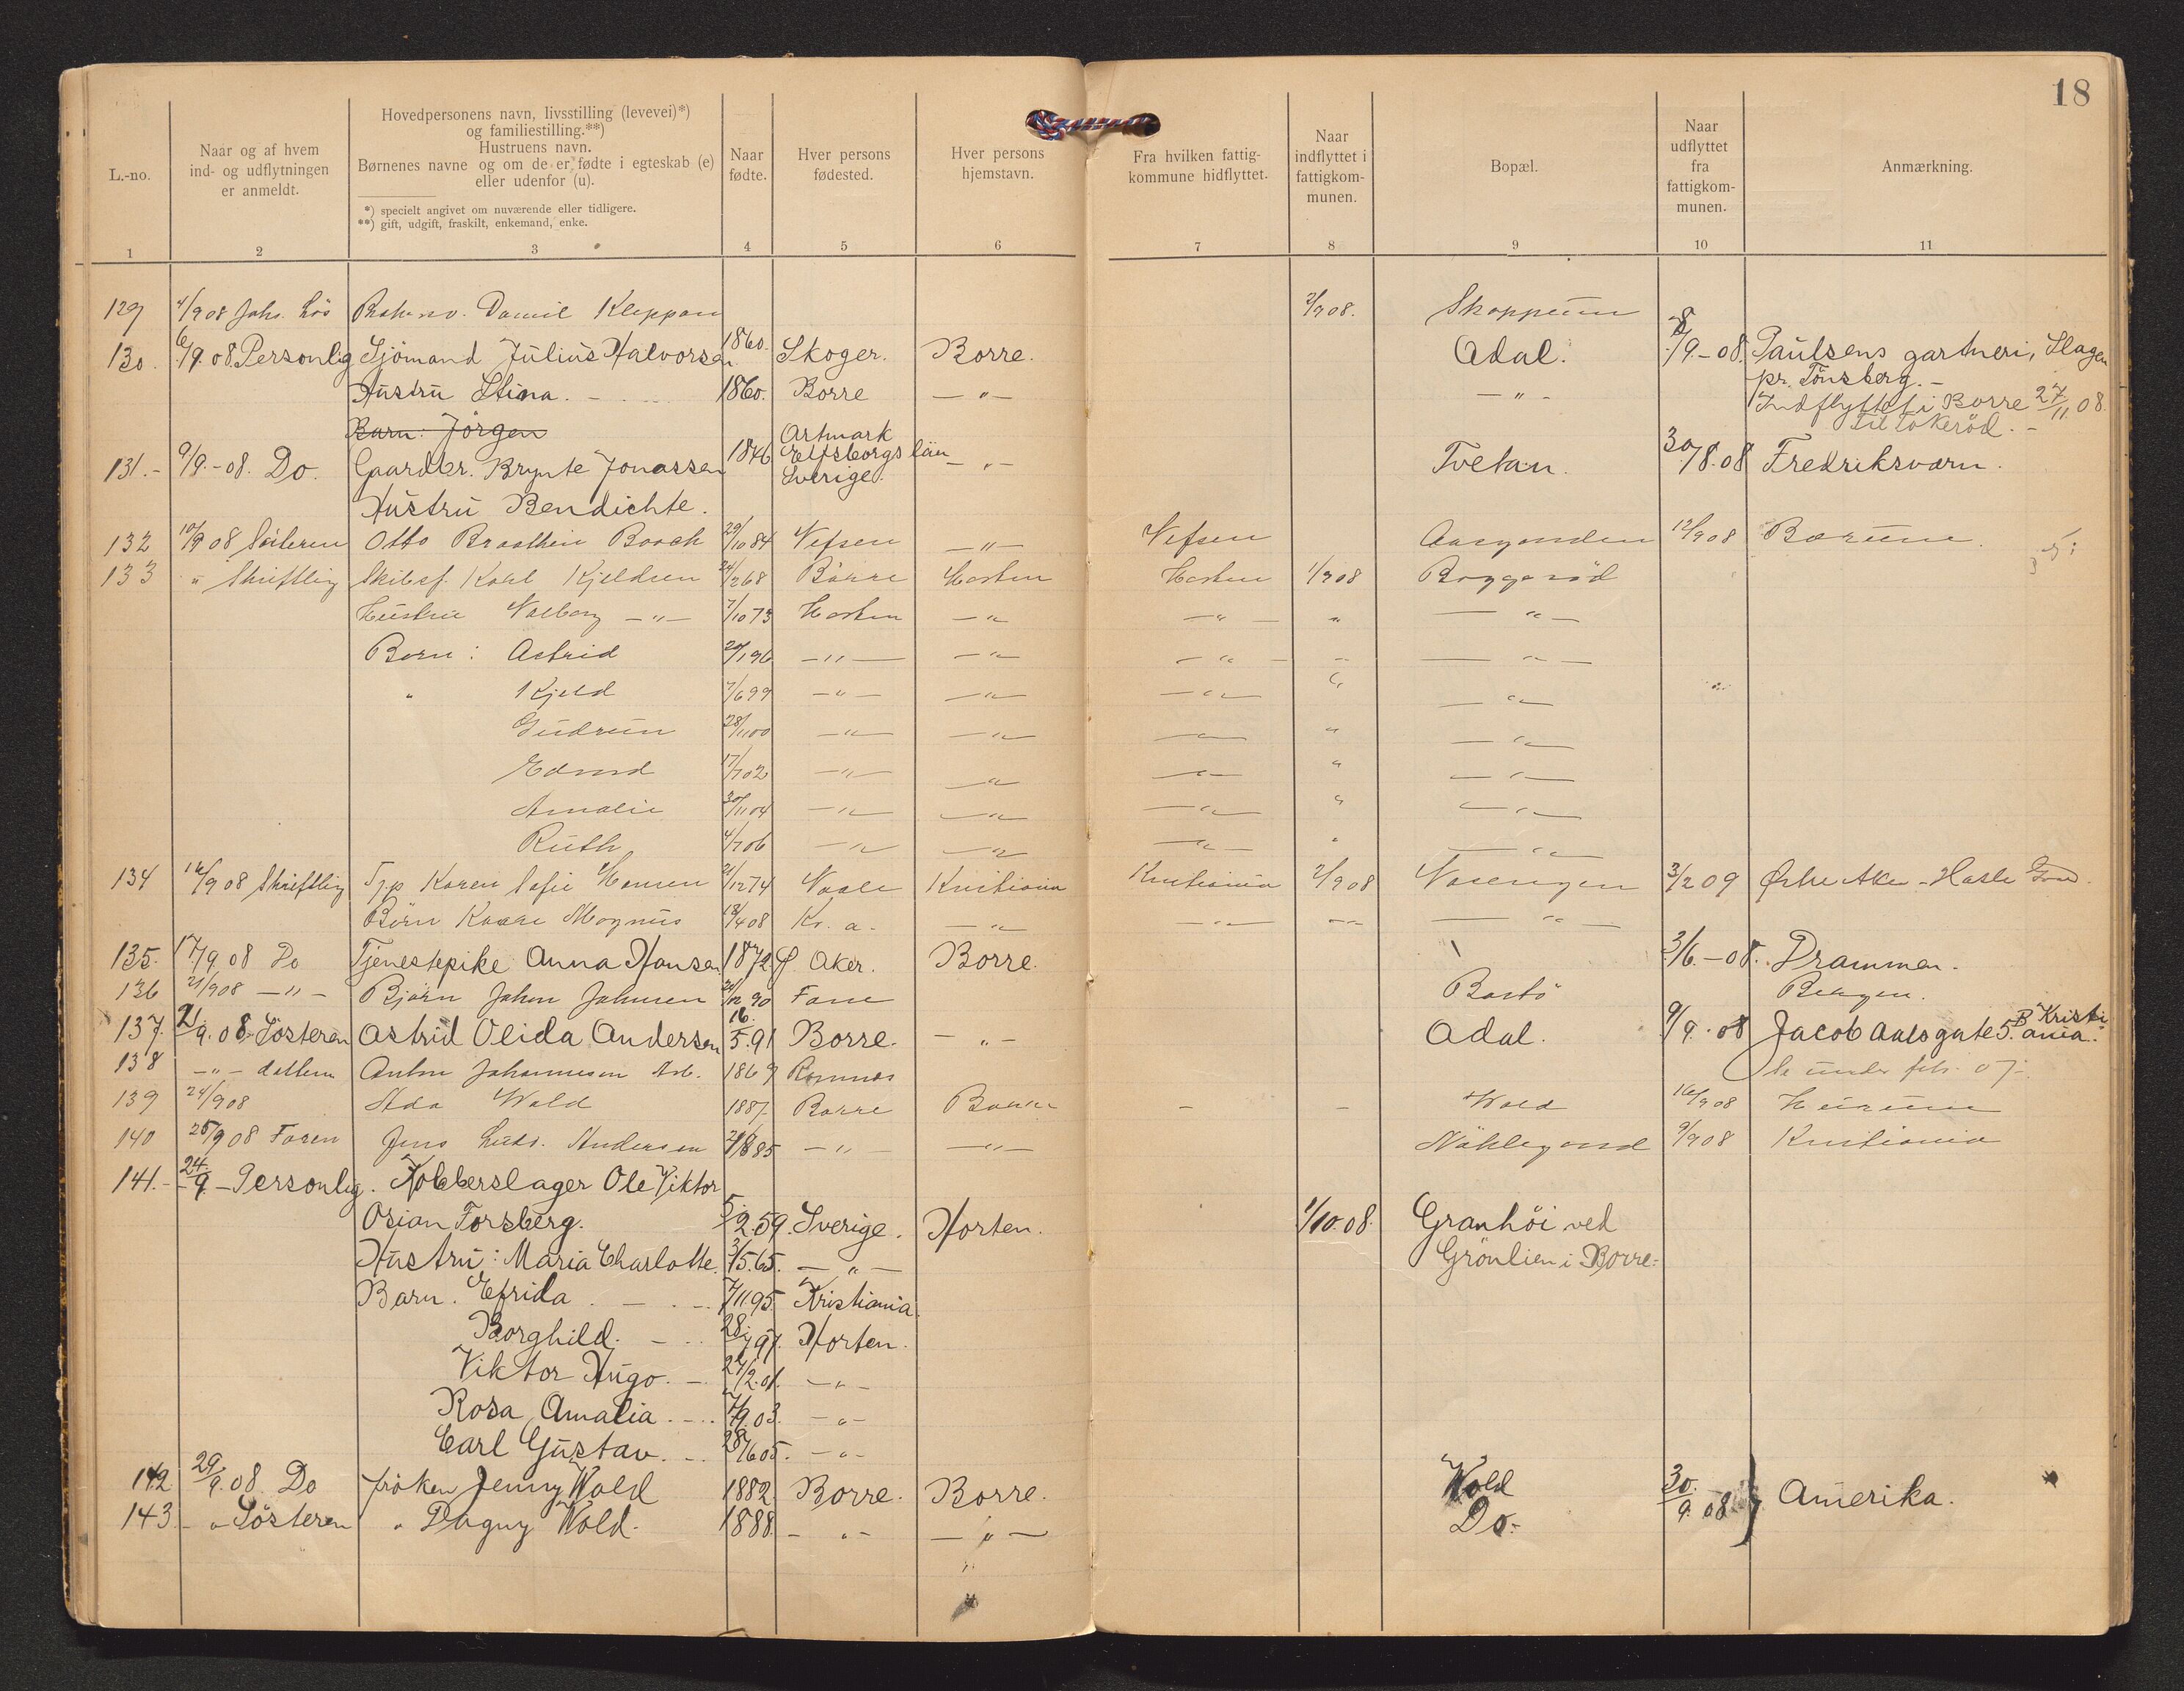 18
L.-no.
Naar og af hvem
ind- og udflytningen
er anmeldt.
Hovedpersonens navn, livsstilling (levevei)*)
og familiestilling.**)
Hustruens navn.
Børnenes navne og om de er fødte i egteskab (e)
eller udenfor (u).
*) specielt angivet om nuværende eller tidligere.
**) gift, udgift, fraskilt, enkemand, enke.
Naar
fødte.
Hver persons
fødested.
Hver persons
hjemstavn.
Fra hvilken fattig-
kommune hidflyttet.
Naar
indflyttet i
fattigkom-
munen.
Bopæl.
Naar
udflyttet
fra
fattigkom-
munen.
Anmærkning.
1 2 3 4 5 6 7 8 9 10 11
129 4/9 08 Daniel Kleppan 2/9 08. Skoppum
130. 6/9. 08. Personlig Sjömand Julius Halvorsen 1860. Skoger. Borre. Adal. 8/9-08 Paulsens gartneri, Slagen
pr. Tönsberg.-
Hustru Stina. - 1860. Borre -"- -"- Indflyttet i Borre 27/11 08.
Barn: Jörgen
131.- 9/9.-08. Do. Gaardbr. Brynte Jonassen 1846 Artmark
Elfsborgs län
Sverige. -"- Tvetan. 30/8.08 Fredriksværn.
Hustru Bendichte.
132 10/9 08 Otto Braathen 29/10 84 Vefsen -"- Vefsen 12/9 08 Bærum
133 " Skriftlig Skibsf. Karl Kjeldsen 24/2 68 Borre Horten Horten 1/9 08
Hustru Valborg -"- 7/10 73 Horten -"- -"- " -"-
Børn: Astrid 29/1 96 -"- -"- -"- -"-
" Kjeld 7/6 99 -"- -"- -"- " -"-
Gudrun 28/11 00 -"- -"- -"- " -"-
17/7 02 -"- -"- -"- " -"-
Amalie 30/11 04 -"- -"- -"- " -"-
Ruth 4/7 06 -"- -"- -"- " -"-
134 12/9 08 Skriftlig Tjp Karen Sofie Hansen 21/12 74 Vaale Kristiania Kristiania 2/9 08 3/2 09 Østre Aker - Hasle
Børn Kaare Magnus 18/4 08 Kr. a. -"- -"- -"- -"-
135. 17/9 08 Do Tjenestepike Anna Hansen 1872 Ø Aker. Borre. 3/6.-08. Drammen.
136 21/9 08 -"- Bjarn Johan Johnsen 90 Fane Bastö Bergen.
137. 21/9. 08 Søsteren Astrid Olida Andersen 16/5.91 Borre. -"- Adal. 9/9.08 Jacob Aalsgate 5. B Kristiania.
138 -"- Anton Johannesen Arb. 1869 Ramnæs
139 24/9 08 Wold 1887 Borre Borre - - Wold 16/9 08 Hurum
140 25/9 08 Faren Jens Ludv. Andersen 85 -"- -"- 9/9 08 Kristiania
141.- 24/9.- Personlig. Kobberslager Ole Viktor
Osian Forsberg. 5/2.59. Sverige. Horten. 1/10.08. Granhöi ved
Hustru: Maria Charlotte. 3/5.65. -"- Grönlien i Borre.
Barn. Efrida. - 7/11 95. Kristiania.
Borghild. - 28/7 97. Horten.
Viktor Hugo. - 24/2.01. -"-
Rosa Amalia. - 7/9.03. -"-
Carl Gustav. - 28/6 05. -"-
142 29/9.08. Do fröken Jenny Wold 1882 Borre. Borre. Wold 30/9.08 Amerika.
143. " Søsteren " Dagny Wold. 1888. -"- -"- Do.